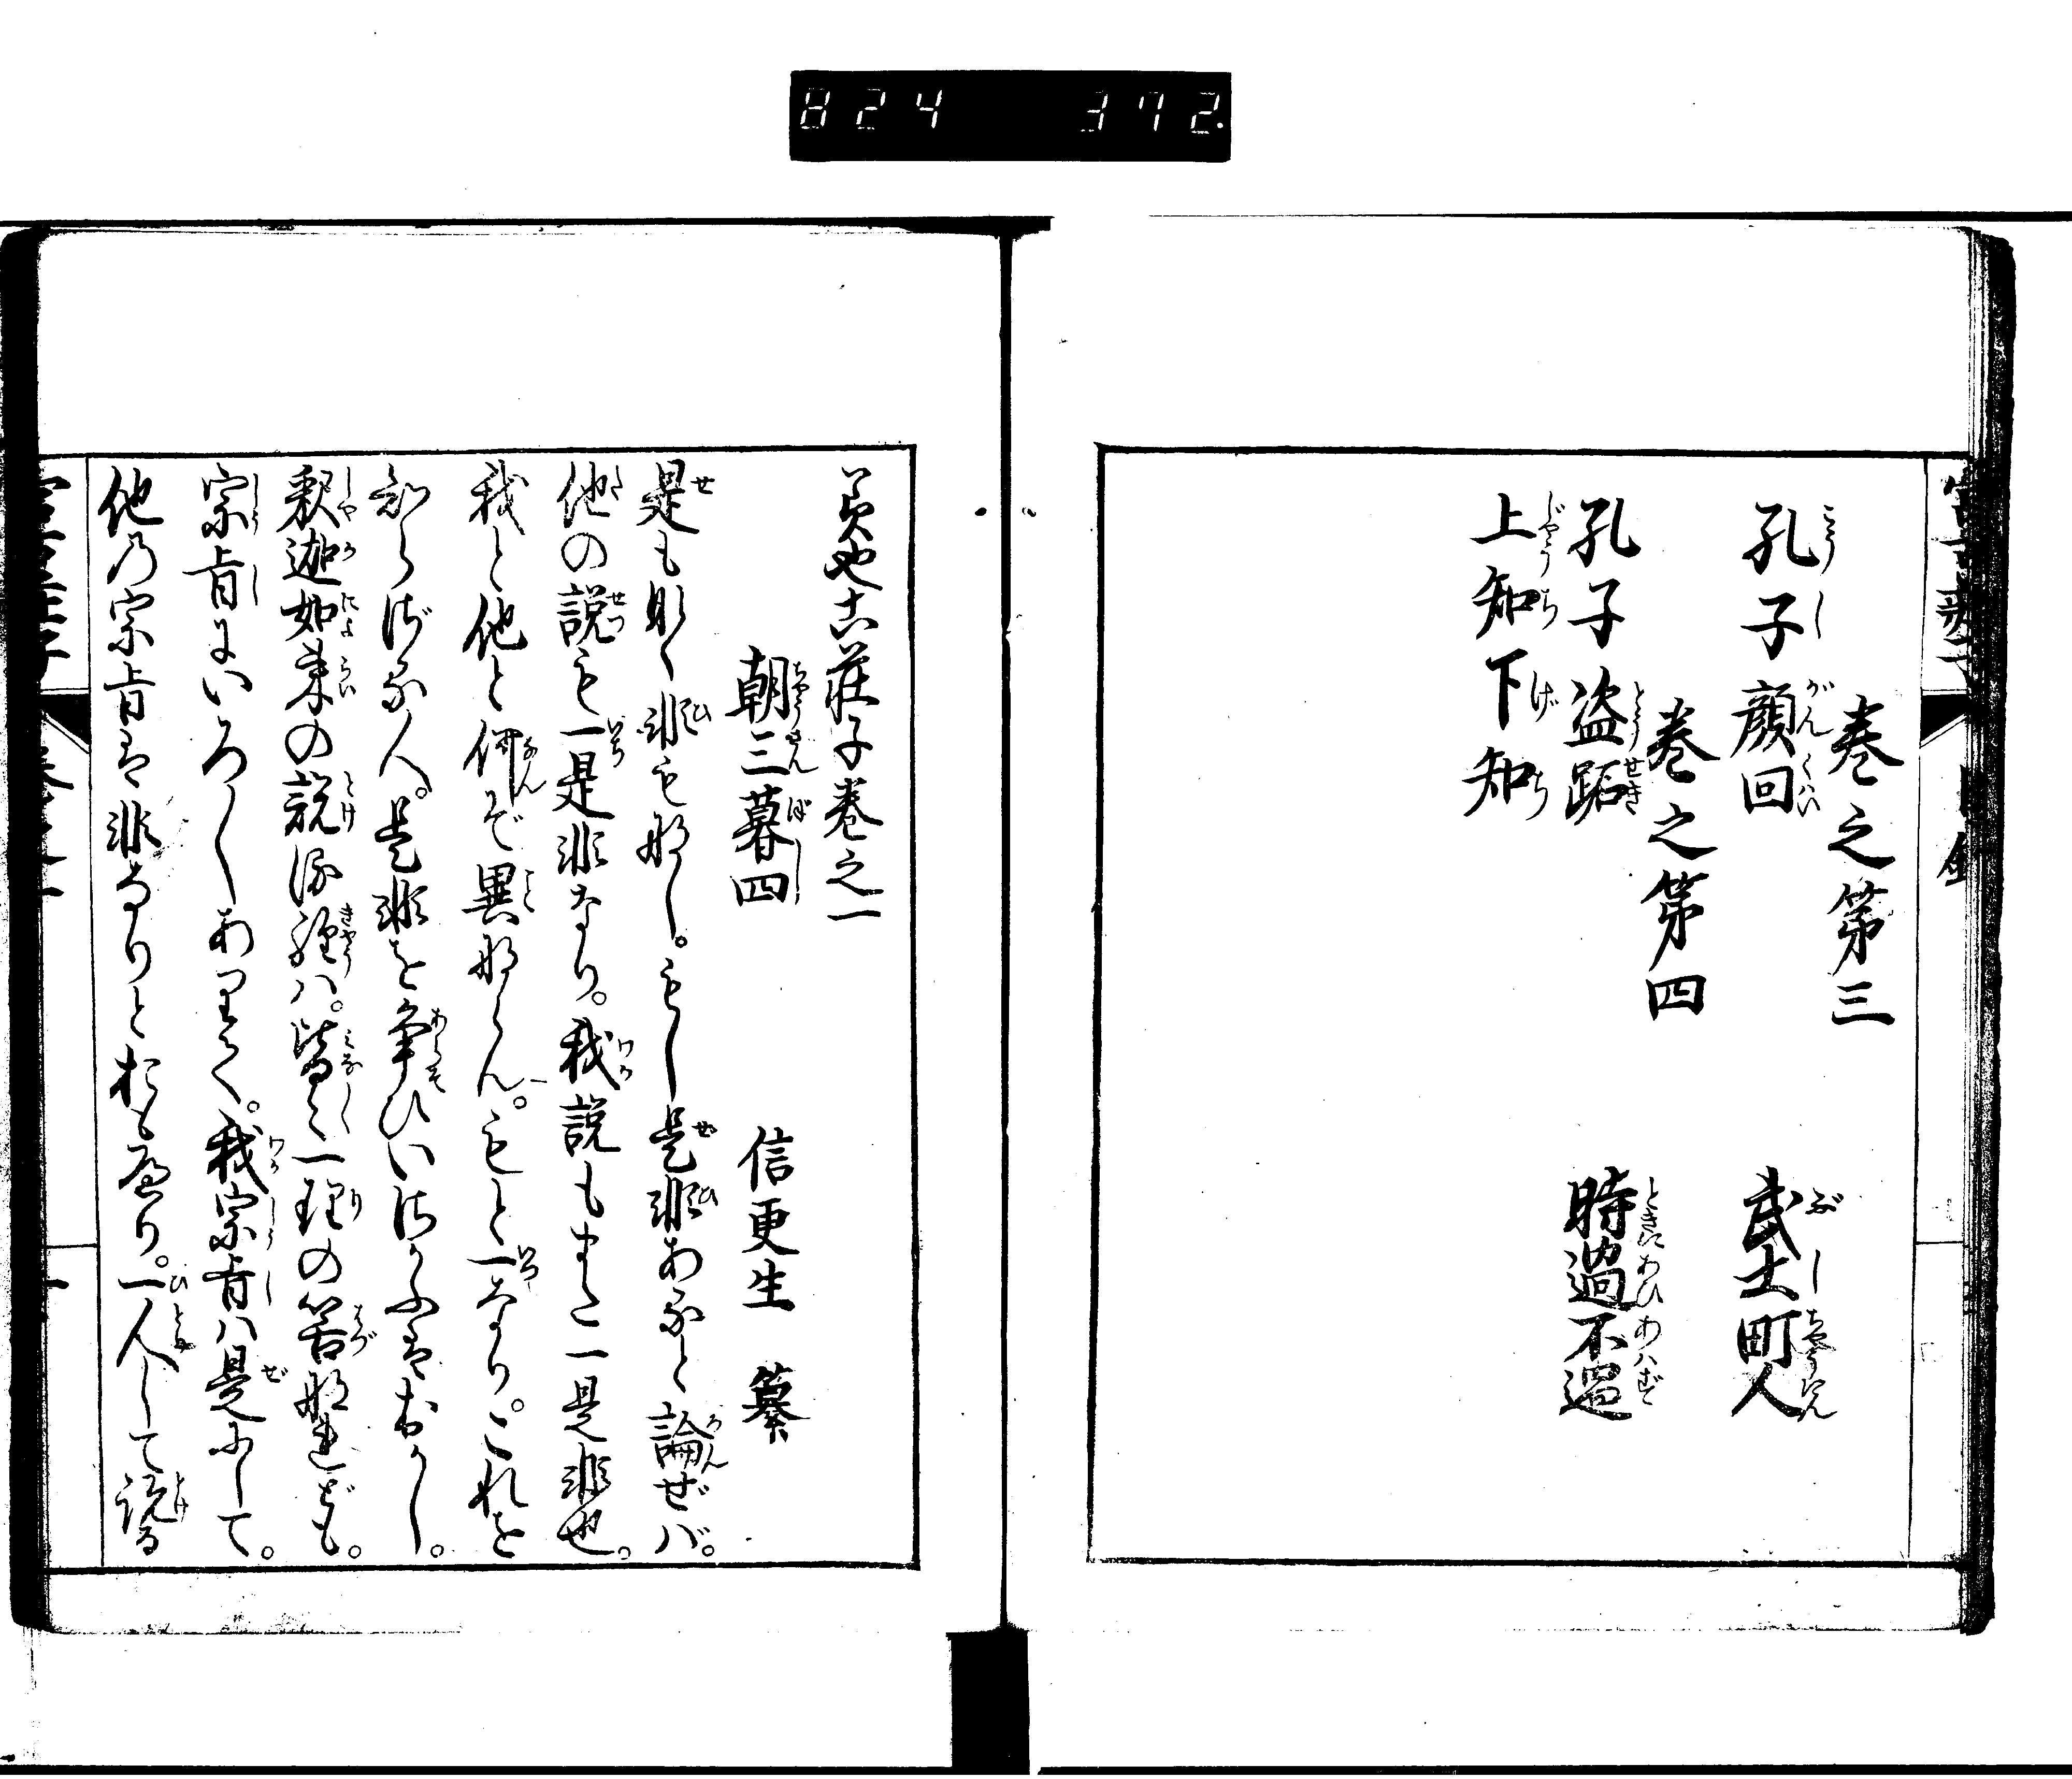 824 372.
巻之第三
孔子顔回 武士町人
巻之第四
孔子盗跖 時遇不遇
上知下知
荘子巻之一
朝三暮四 信更生 纂
是もなく非もなし。もし是非あると論ぜバ。
他の説も一是非なり。我説もまた一是非也。
我と他と何ぞ異ならん。もと一なり。これを
知らざる人。是非を争ひいさかふはおかし。
釈迦如来の説る経ハ。皆〻一理の筈なれども。
宗旨にいろ〳〵ありて。我宗旨ハ是にして。
他の宗旨は非なりとおもへり。一人して説る